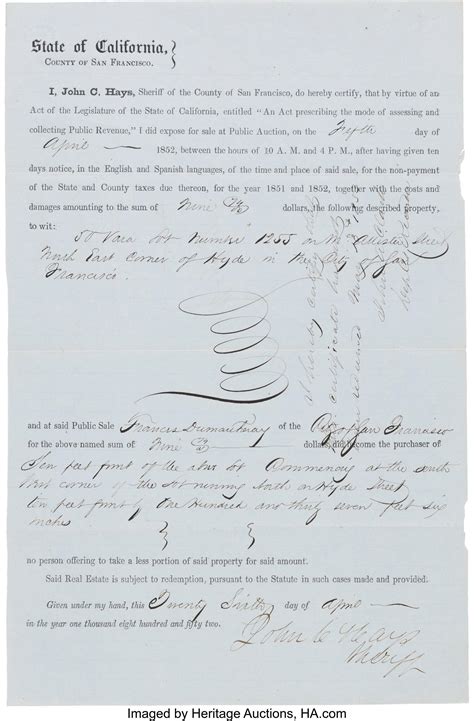 State of California,
COUNTY OF SAN FRANCISCO.
I, John C. Hays, Sheriff of the County of San Francisco, do hereby certify, that by virtue of an
Act of the Legislature of the State of California, entitled "An Act prescribing the mode of assessing and
collecting Public Revenue," I did expose for sale at Public Auction, on the day of
April 1852, between the hours of 10 A. M. and 4 P. M., after having given ten
days notice, in the English and Spanish languages, of the time and place of said sale, for the non-payment
of the State and County taxes due thereon, for the year 1851 and 1852, together with the costs and
damages amounting to the sum of Nine dollars, the following described property,
to wit:
50 Vara Lot Number 1255 on McAllister Street
North East corner of Hyde in the City of San
Francisco.
and at said Public Sale Francis of the City of San Francisco
for the above named sum of Nine dollars, did become the purchaser of
Ten feet front of the above Lot Commencing at the south
West corner of the Lot running North on Hyde Street
ten feet front by One Hundred and thirty seven feet six
inches
no person offering to take a less portion of said property for said amount.
Said Real Estate is subject to redemption, pursuant to the Statute in such cases made and provided.
Given under my hand, this Twenty Sixth day of April
in the year one thousand eight hundred and fifty two.
John C Hays
Sheriff
I hereby certify that
certificate
redeemed
Imaged by Heritage Auctions, HA.com